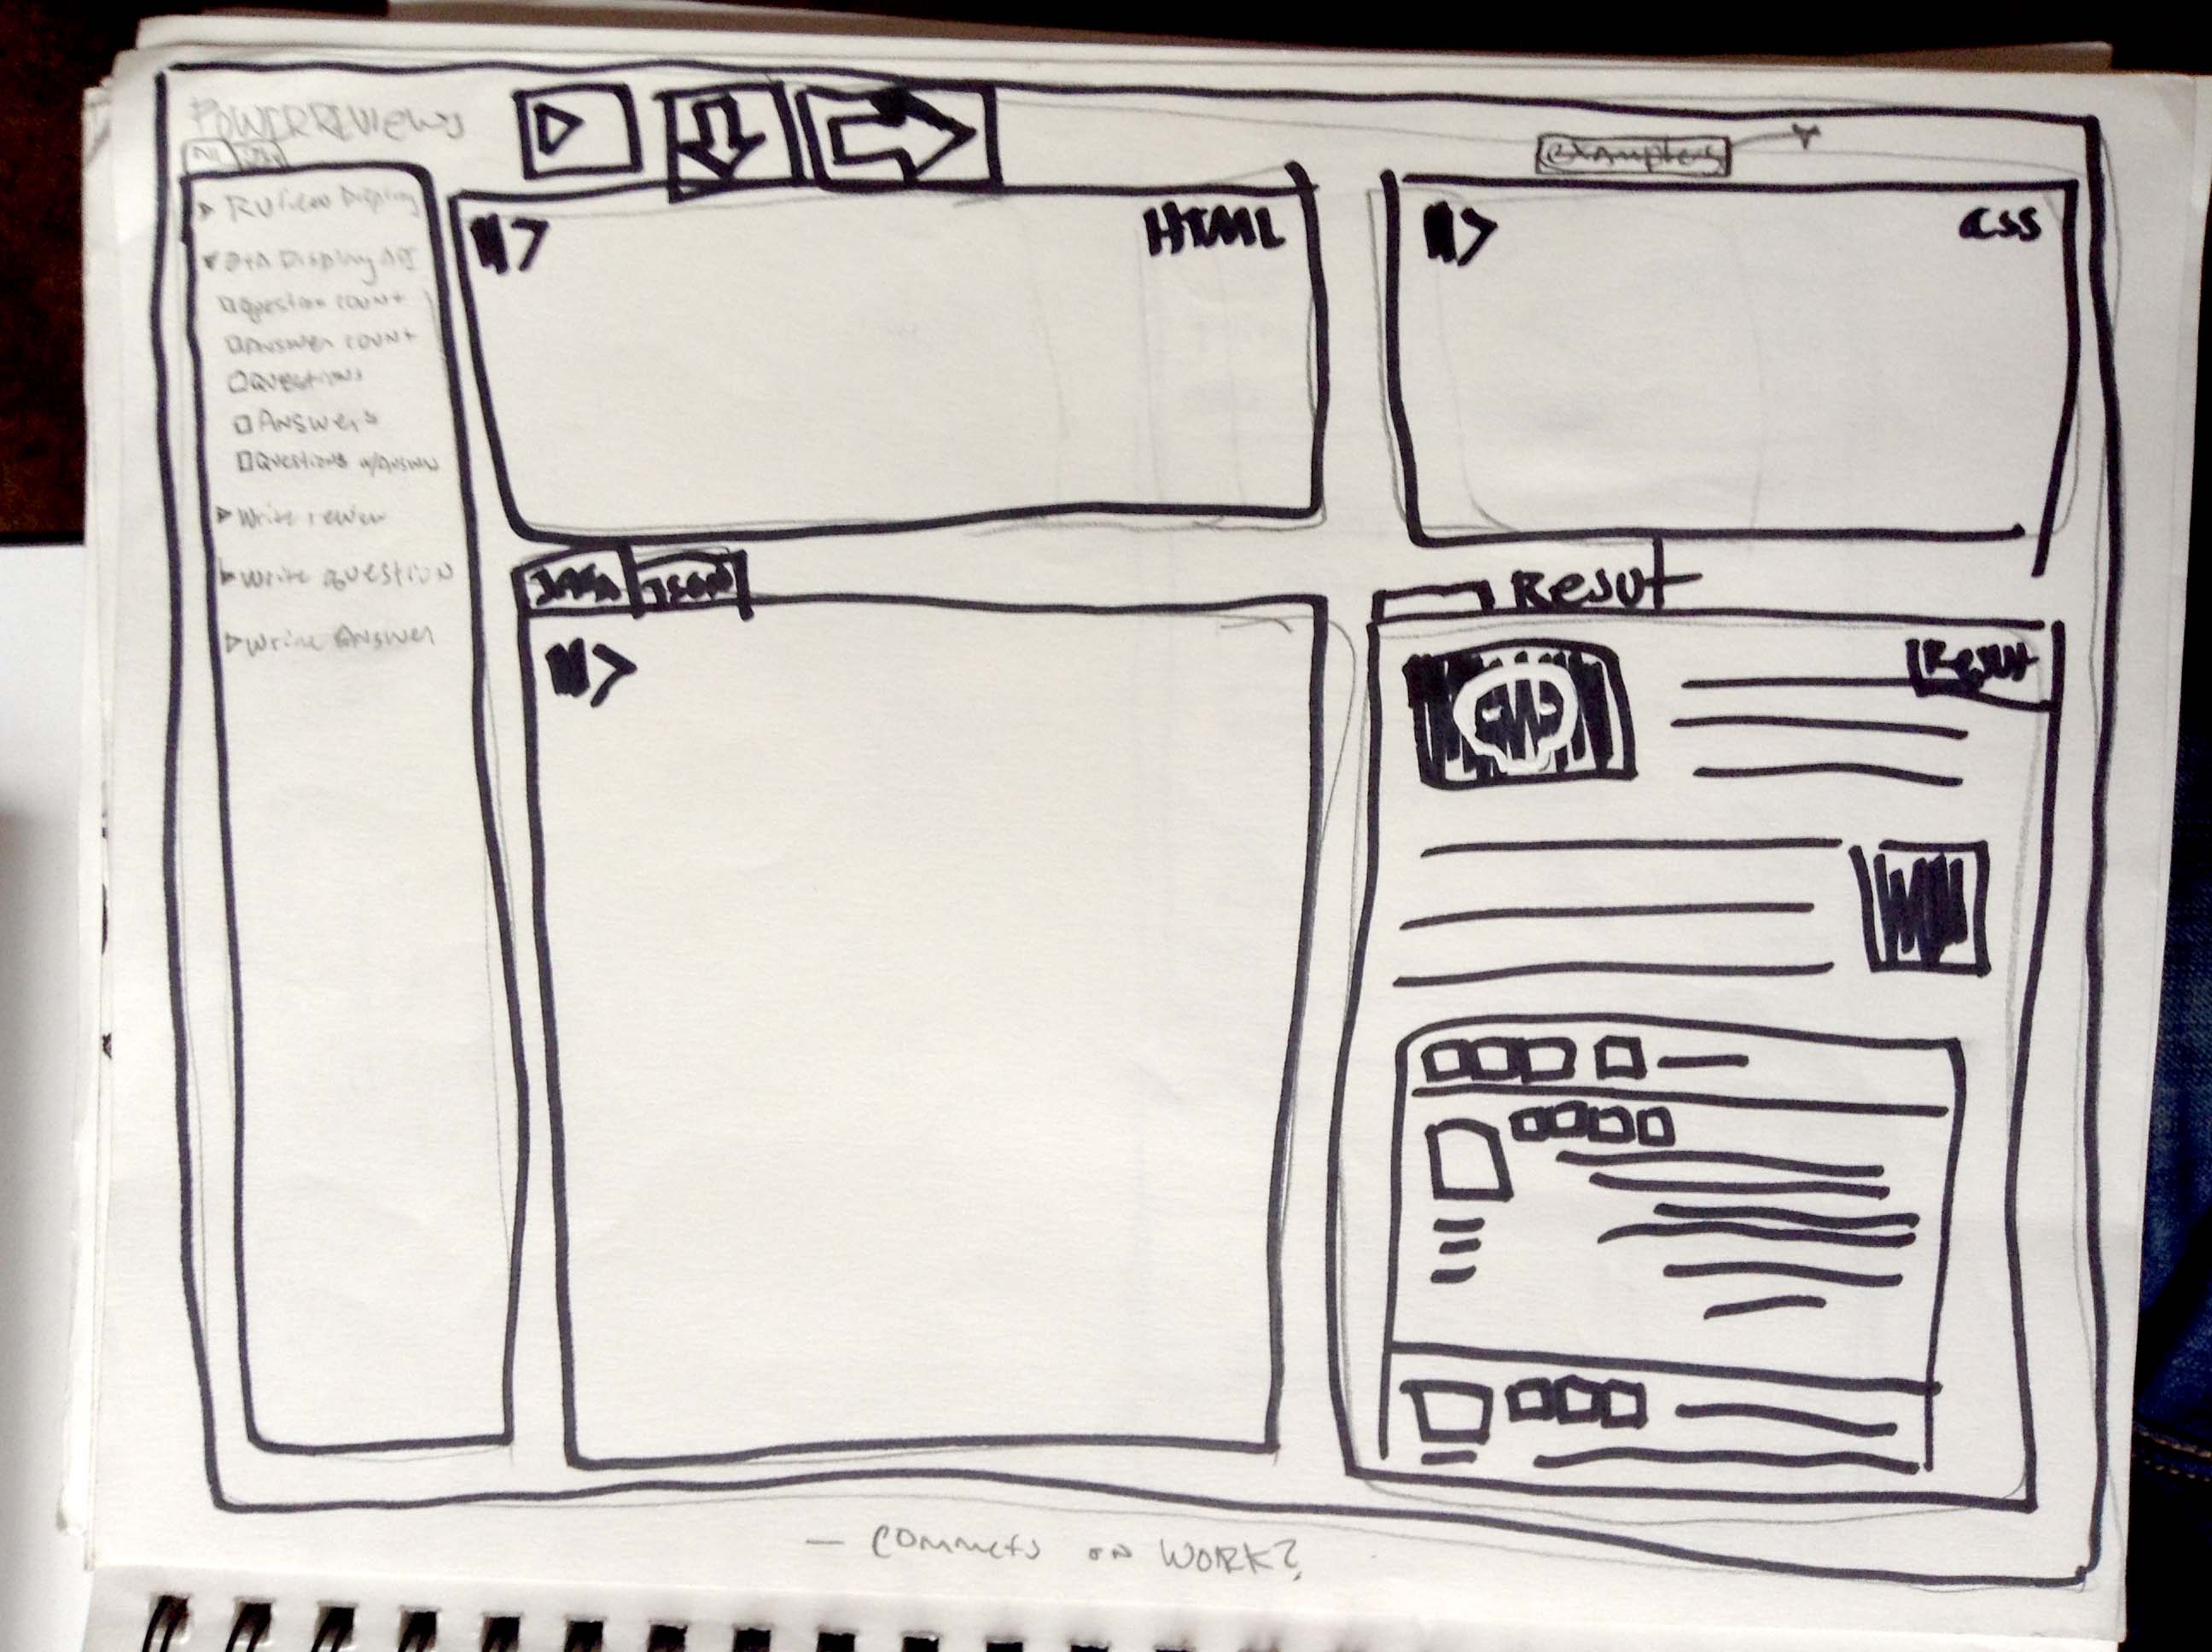 POWERREVIEWS
examples
Review Display
Q+A Display API
Question count
Answer count
Questions
Answers
Questions w/Answers
Write review
Write question
Write Answer
HTML
CSS
JSON
Resut
Resut
— Commets on WORK?